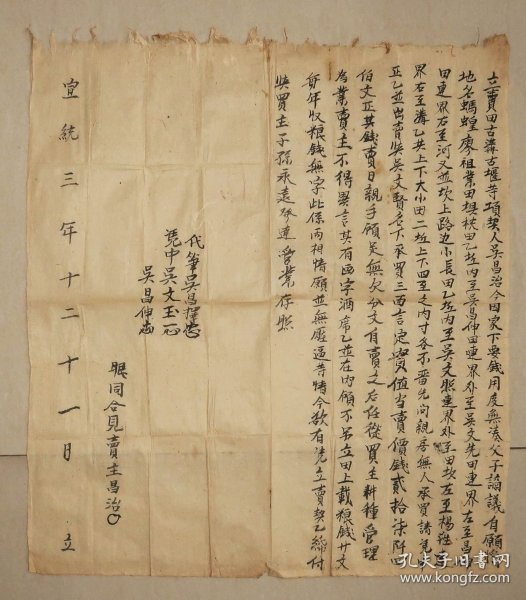 立賣田古溝古堰等項契人吳昌治今因家下要錢用度無湊父子謫議自願
地名螞蝗廖祖業田垻秧田乙坵內至吳昌伸田連界外至吳文先田連界左至昌
田連界右至河又並坎上路边小長田乙坵內至吳文熙連界外至田坎左至楊姓
界右至溝乙共上下大小田二坵上下四至之內寸土不留先问親房無人承買請
正乙並出賣與吳文賢名下承買三面言定實值當賣價錢貳拾柒阡四
伯文正其錢賣日親手領足無欠分文自賣之后任從買主耕種管理
為業賣主不得異言其有画字酒席乙並在內領不另立田上載粮錢廿文
每年收粮錢無字此係內相情願並無壓逼等情今欲有凭立賣契乙紙付
與買主子孫永遠承連管業存照
代筆吳昌
凭中吳文玉
吳昌伸
眼同合見賣主昌治
宣統三年十二十一日 立
孔夫子旧书网
www.kongfz.com